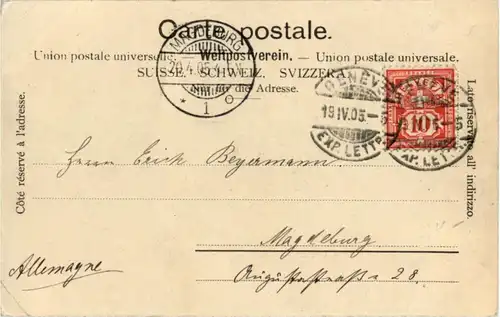 Carte postale.
Union postale universelle. — Weltpostverein. — Union postale universale.
SUISSE. SCHWEIZ. SVIZZERA.
Nur für die Adresse.
MAGDEBURG
20.4.05.
* 1 o
GENÈVE
19.IV.05.—5
EXP. LETTR.
10
EXP. LETTR.
Côté réservé à l'adresse.
Lato riservato all' indirizzo.
Herrn Erich Beyermann
Magdeburg
Augustastraße 28.
Allemagne